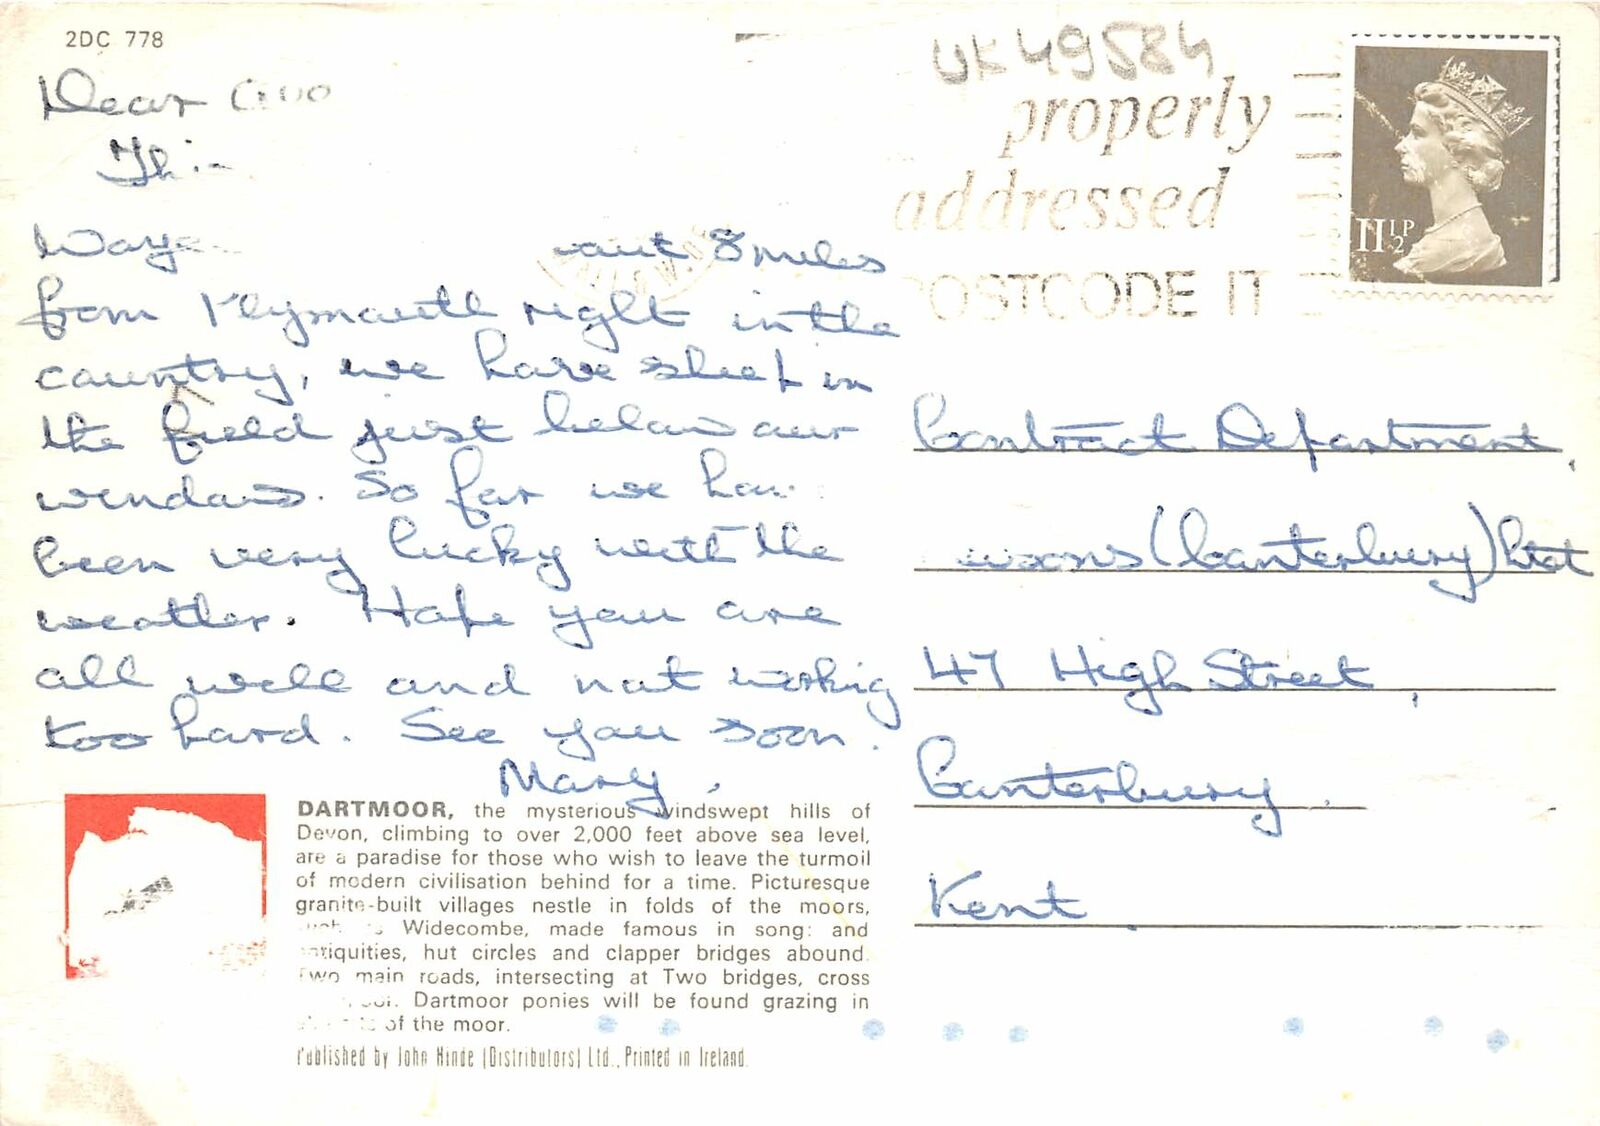 2DC 778
Dear
way
8 miles
from Plymouth right in the
country, we have sheep in
the field just below our
windows. So far we
been very lucky with the
weather. Hope you are
all well and not working
too hard. See you soon.
Mary.
UK49584
properly
addressed
POSTCODE IT
11½P
Contract Department,
(Canterbury) Ltd
47 High Street,
Canterbury.
Kent
DARTMOOR, the mysterious windswept hills of
Devon, climbing to over 2,000 feet above sea level,
are a paradise for those who wish to leave the turmoil
of modern civilisation behind for a time. Picturesque
granite-built villages nestle in folds of the moors,
Widecombe, made famous in song: and
antiquities, hut circles and clapper bridges abound.
Two main roads, intersecting at Two bridges, cross
Dartmoor ponies will be found grazing in
of the moor.
Published by John Hinde (Distributors) Ltd., Printed in Ireland.